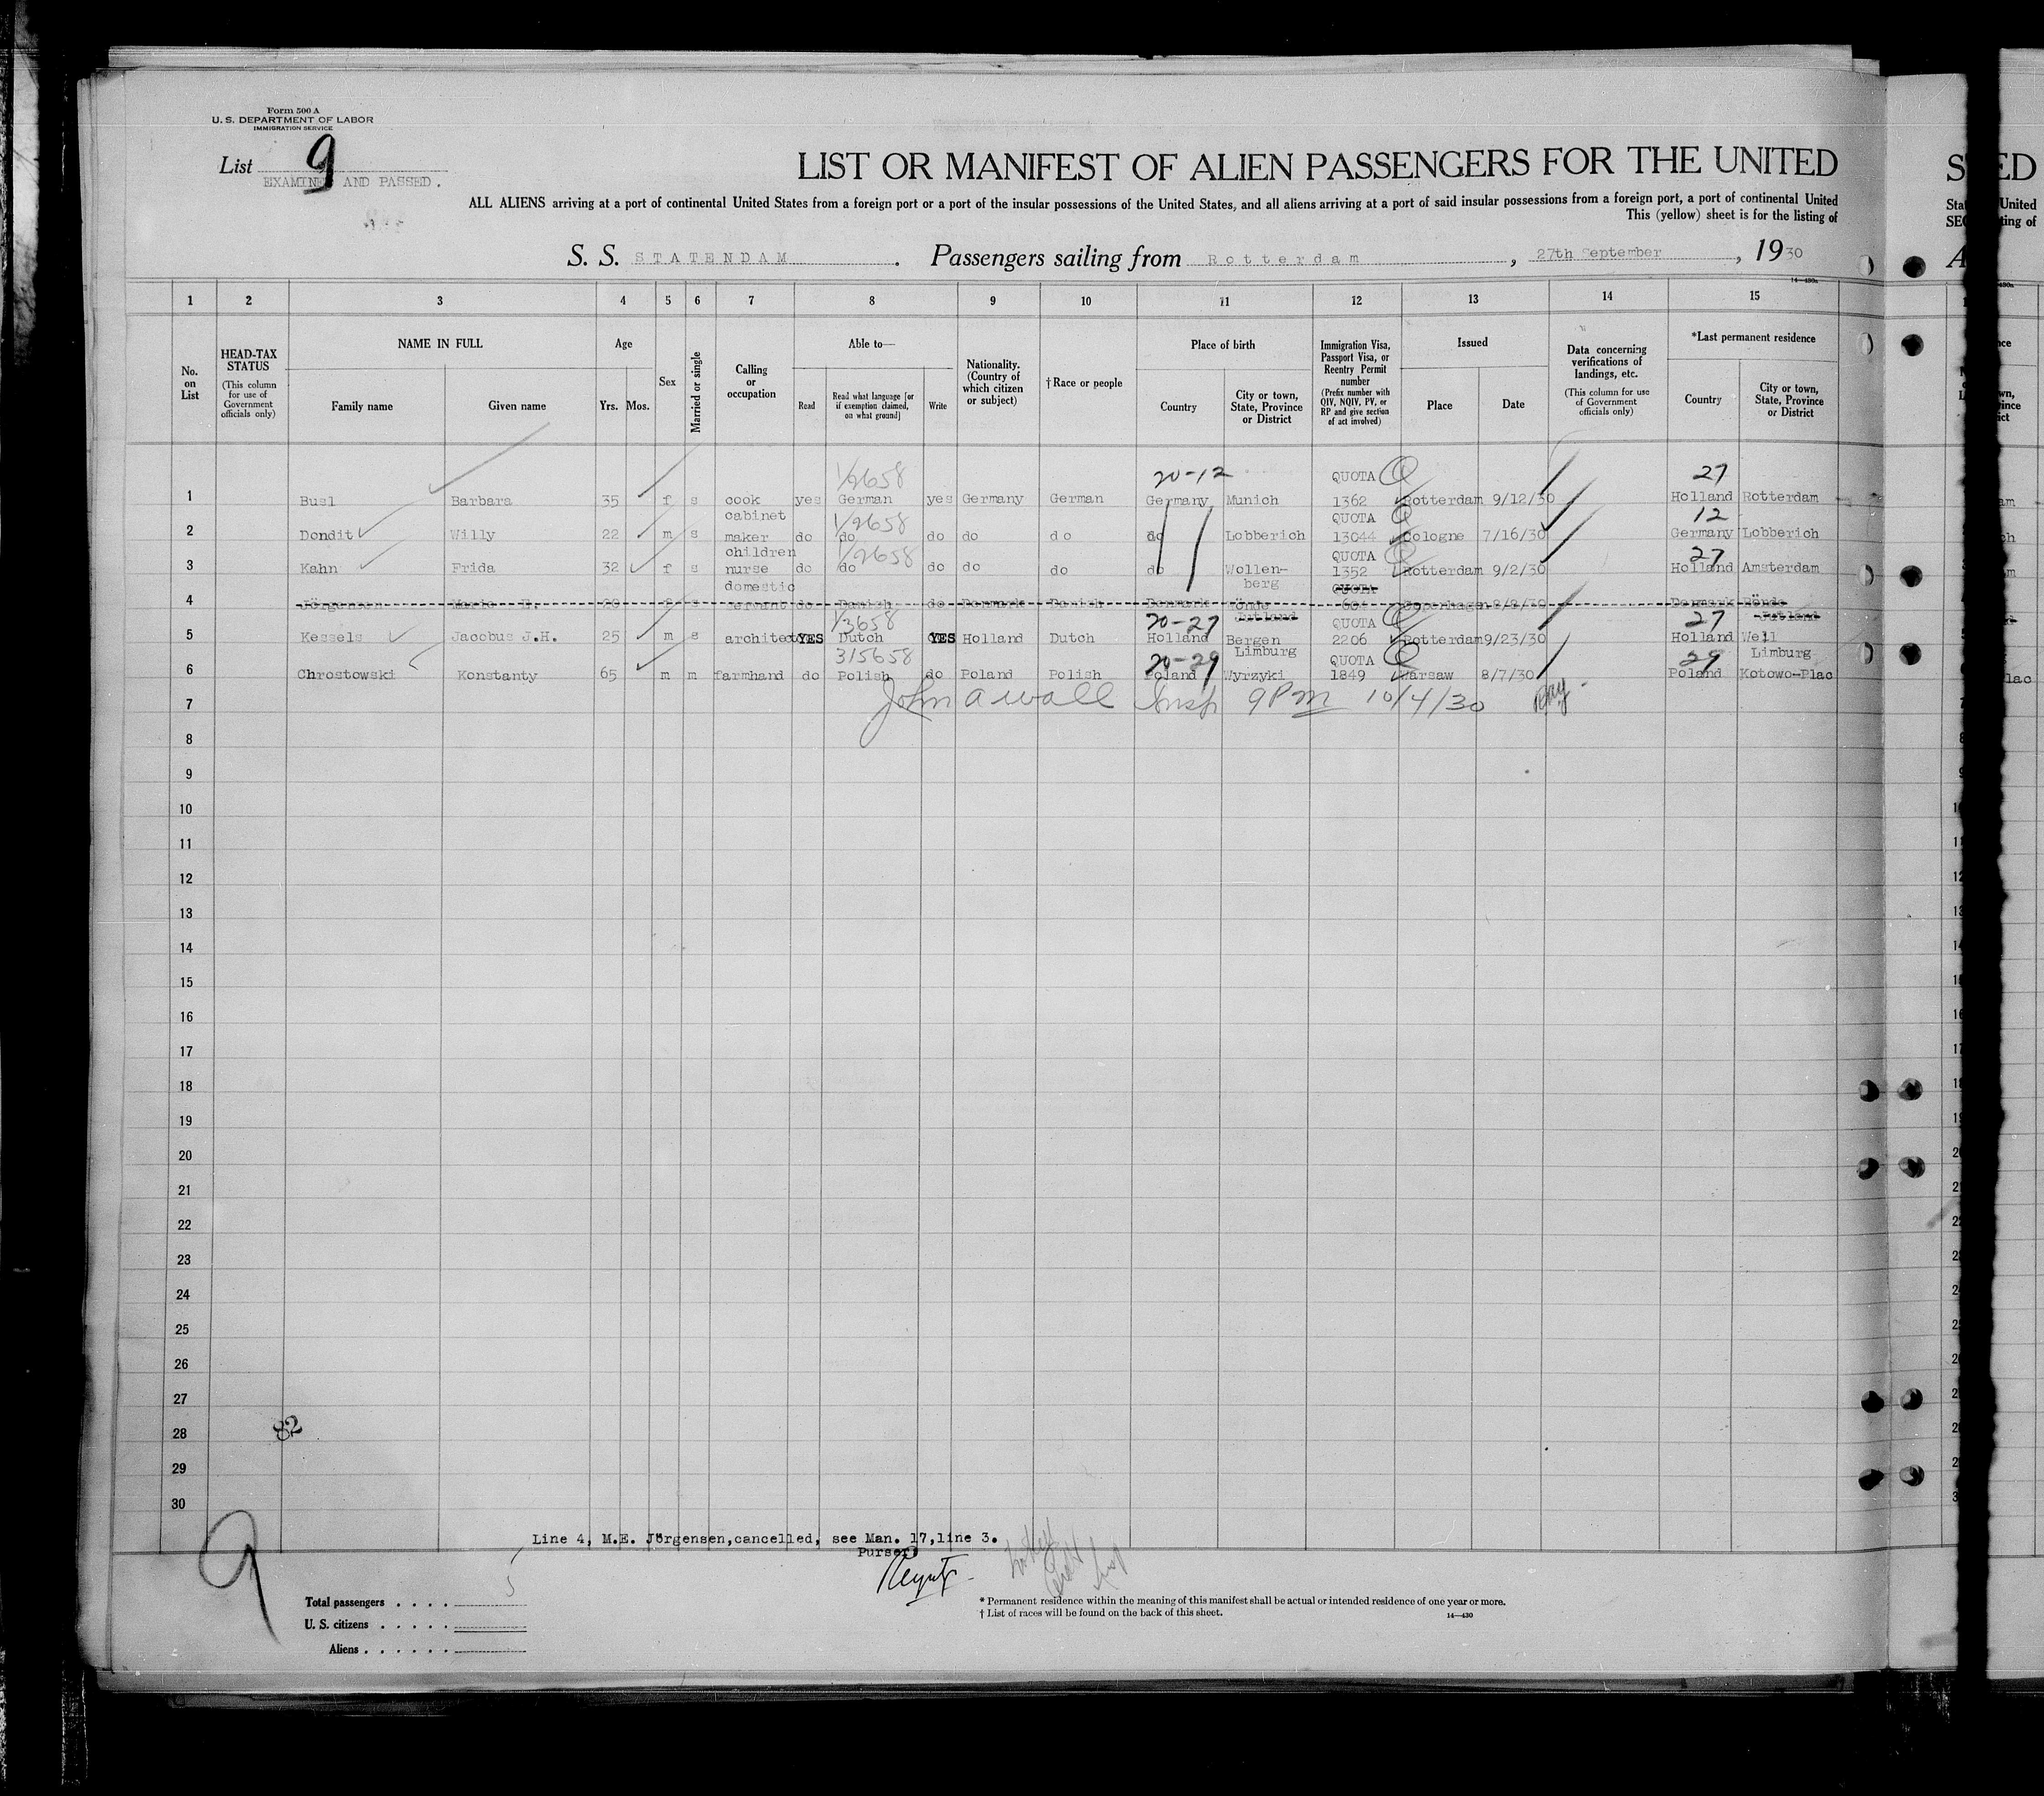 Form 500 A
U. S. DEPARTMENT OF LABOR
IMMIGRATION SERVICE
List 9
EXAMINED AND PASSED.
LIST OR MANIFEST OF ALIEN PASSENGERS FOR THE UNITED
ALL ALIENS arriving at a port of continental United States from a foreign port or a port of the insular possessions of the United States, and all aliens arriving at a port of said insular possessions from a foreign port, a port of continental United
This (yellow) sheet is for the listing of
S. S. STATENDAM. Passengers sailing from Rotterdam, 27th September, 1930
14—430a
1 2 3 4 5 6 7 8 9 10 11 12 13 14 15
No. on List
HEAD-TAX STATUS (This column for use of Government officials only)
NAME IN FULL
Family name Given name
Age
Yrs. Mos.
Sex
Married or single
Calling or occupation
Able to—
Read Read what language [or if exemption claimed, on what ground] Write
Nationality. (Country of which citizen or subject)
†Race or people
Place of birth
Country City or town, State, Province or District
Immigration Visa, Passport Visa, or Reentry Permit number (Prefix number with QIV, NQIV, PV, or RP and give section of act involved)
Issued
Place Date
Data concerning verifications of landings, etc. (This column for use of Government officials only)
*Last permanent residence
Country City or town, State, Province or District
1/2658 20-12 QUOTA Q 27
1 Busl Barbara 35 f s cook yes German yes Germany German Germany Munich 1362 Rotterdam 9/12/30 Holland Rotterdam
cabinet 1/2658 QUOTA Q 12
2 Dondit Willy 22 m s maker do do do do do do Lobberich 13044 Cologne 7/16/30 Germany Lobberich
children 1/2658 QUOTA Q 27
3 Kahn Frida 32 f s nurse do do do do do do Wollen- 1352 Rotterdam 9/2/30 Holland Amsterdam
domestic berg QUOTA
4 Jörgensen Marie E. f s servant do Danish do Denmark Danish Denmark Rönde 604 Copenhagen Denmark Rönde
1/3658 20-27 Jutland QUOTA Q 27 Jutland
5 Kessels Jacobus J.H. 25 m s architect YES Dutch YES Holland Dutch Holland Bergen 2206 Rotterdam 9/23/30 Holland Well
315658 20-29 Limburg QUOTA Q 29 Limburg
6 Chrostowski Konstanty 65 m m farmhand do Polish do Poland Polish Poland Wyrzyki 1849 Warsaw 8/7/30 Poland Kotowo-Plac
7 John A Wall Insp 9 PM 10/4/30
8
9
10
11
12
13
14
15
16
17
18
19
20
21
22
23
24
25
26
27
28
82
29
30
9
Line 4, M.E. Jörgensen,cancelled, see Man. 17,line 3.
Purser
Total passengers . . . . 5
U. S. citizens . . . . .
Aliens . . . . . .
* Permanent residence within the meaning of this manifest shall be actual or intended residence of one year or more.
† List of races will be found on the back of this sheet.
14—430